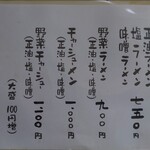 正油ラーメン
塩ラーメン
味噌ラーメン
七五〇円
野菜ラーメン
(正油・塩・味噌)
九〇〇円
チャーシューメン
(正油・塩・味噌)
一、〇〇〇円
野菜チャーシュー
(正油・塩・味噌)
一、一〇〇円
(大盛100円増)